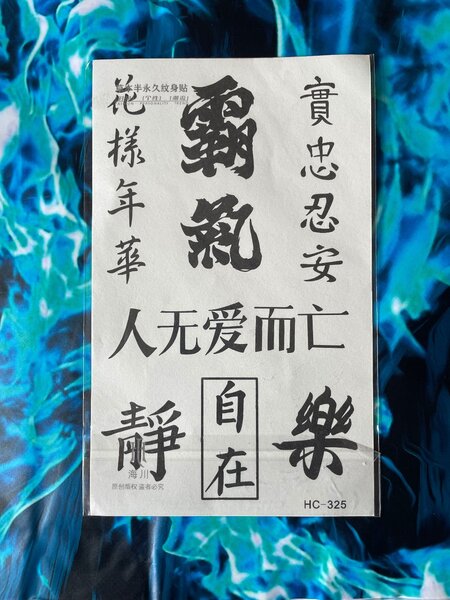 草本半永久纹身贴
花樣年華
霸氣
實忠忍安
人无爱而亡
靜
自在
樂
海川
原创版权 盗者必究
HC-325